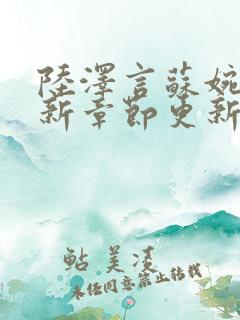 陸澤言蘇婉
新章節更新
鮎美凌
未经同意禁止转载